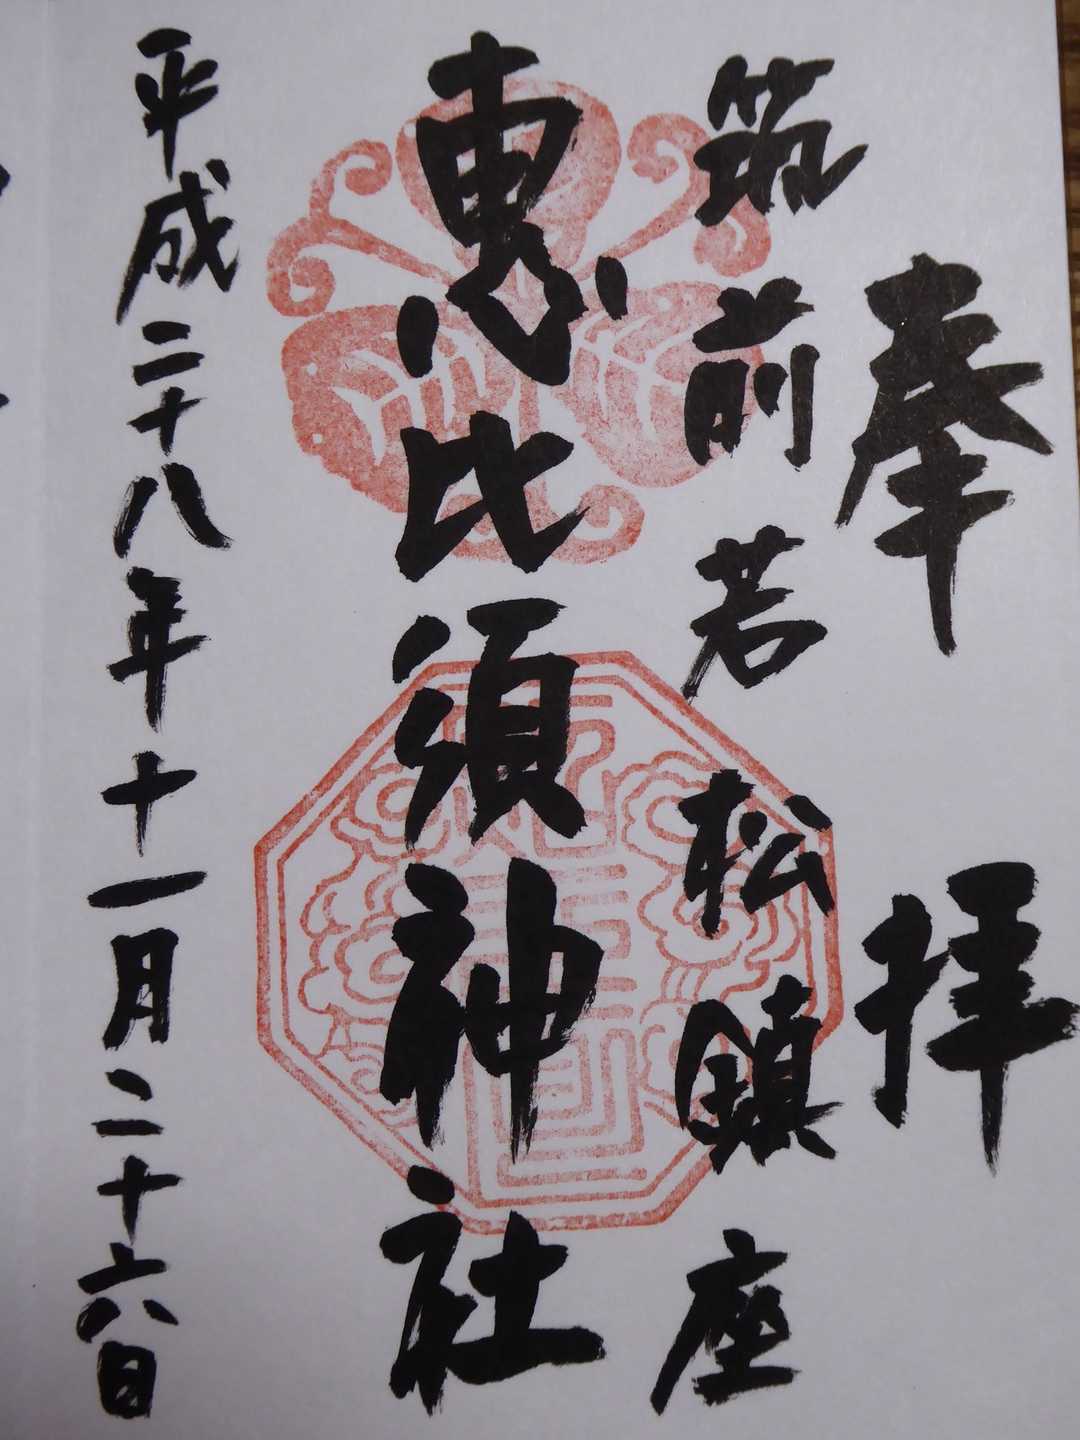 奉拝
筑前若松鎮座
恵比須神社
平成二十八年十一月二十六日